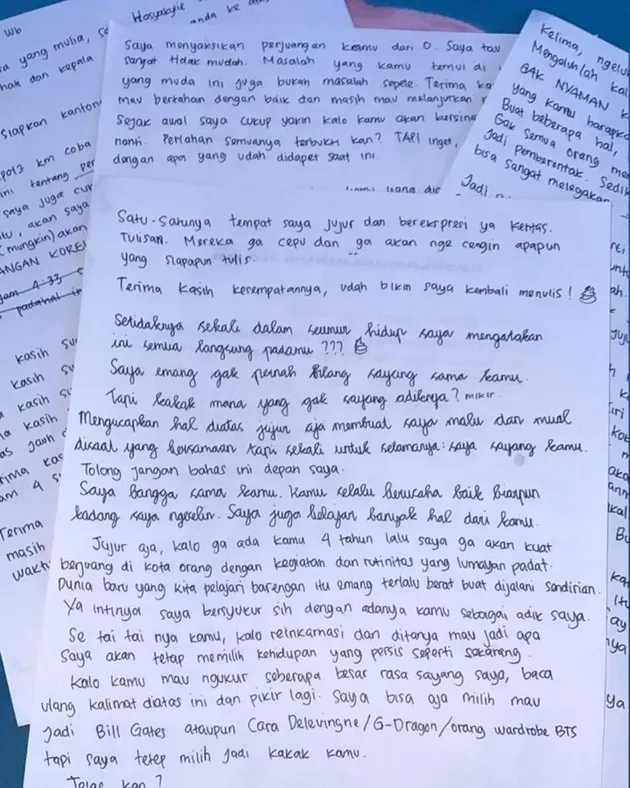 wb
Hosyakyie
anda ke
a yang mulia,
hak dan kepala
siapkan kanton
pol3 km coba
ini tentang
saya juga
tu, akan saya
(mungkin) akan
ANGAN KORE
jam 4.33
padahal
kasih
kasih
kasih
kasih
jauh
rima kas
am 4
Terima
masih
wakt
Saya menyaksikan perjuangan kamu dari 0. Saya tau
sangat tidak mudah. Masalah yang kamu temui di
yang muda ini juga bukan masalah sepele. Terima ka
mau bertahan dengan baik dan masih mau melanjutkan
Sejak awal saya cukup yakin kalo kamu akan bersina
nanti. Perlahan semuanya terbukti kan? TAPI inget,
dengan apa yang udah didapet saat ini.
Kelima, ngelu
Mengaluhlah kal
GAK NYAMAN K
yang kamu harapka
Buat beberapa hal,
Gak semua orang me
Jadi pemberontak. Sedik
bisa sangat melegakan
Jadi
Satu-satunya tempat saya jujur dan berekspresi ya kertas.
Tulisan. Mereka ga cepu dan ga akan nge cengin apapun
yang siapapun tulis.
Terima kasih kesempatannya, udah bikin saya kembali menulis!
Setidaknya sekali dalam seumur hidup saya mengatakan
ini semua langsung padamu ???
Saya emang gak pernah bilang sayang sama kamu.
Tapi kakak mana yang gak sayang adiknya? mikir.
Mengucapkan hal diatas jujur aja membuat saya malu dan mual
disaat yang bersamaan tapi sekali untuk selamanya: saya sayang kamu.
Tolong jangan bahas ini depan saya.
Saya bangga sama kamu. Kamu selalu berusaha baik biarpun
kadang saya ngeselin. Saya juga belajar banyak hal dari kamu.
Jujur aja, kalo ga ada kamu 4 tahun lalu saya ga akan kuat
berjuang di kota orang dengan kegiatan dan rutinitas yang lumayan padat.
Dunia baru yang kita pelajari barengan itu emang terlalu berat buat dijalani sendirian.
Ya intinya saya bersyukur sih dengan adanya kamu sebagai adik saya.
Se tai tai nya kamu, kalo reinkarnasi dan ditanya mau jadi apa
saya akan tetap memilih kehidupan yang persis seperti sekarang.
Kalo kamu mau ngukur seberapa besar rasa sayang saya, baca
ulang kalimat diatas ini dan pikir lagi. Saya bisa aja milih mau
jadi Bill Gates ataupun Cara Delevingne/G-Dragon/orang wardrobe BTS
tapi saya tetep milih jadi kakak kamu.
Tolas kan?